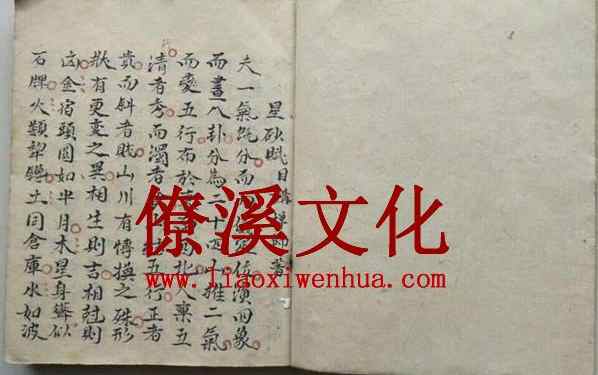 星砂賦目禪師著
夫一氣既分而定位演四象
而畫八卦分為二十四推二氣
而變五行布於北八五
清者秀而濁者結五行正者
貴而斜者賤山川有博換之殊形
狀有更变之異相生則吉相尅則
凶金宿頭圓如半月木星身聳似
石牌火類犂土同倉庫水如波
僚溪文化
www.liaoxiwenhua.com